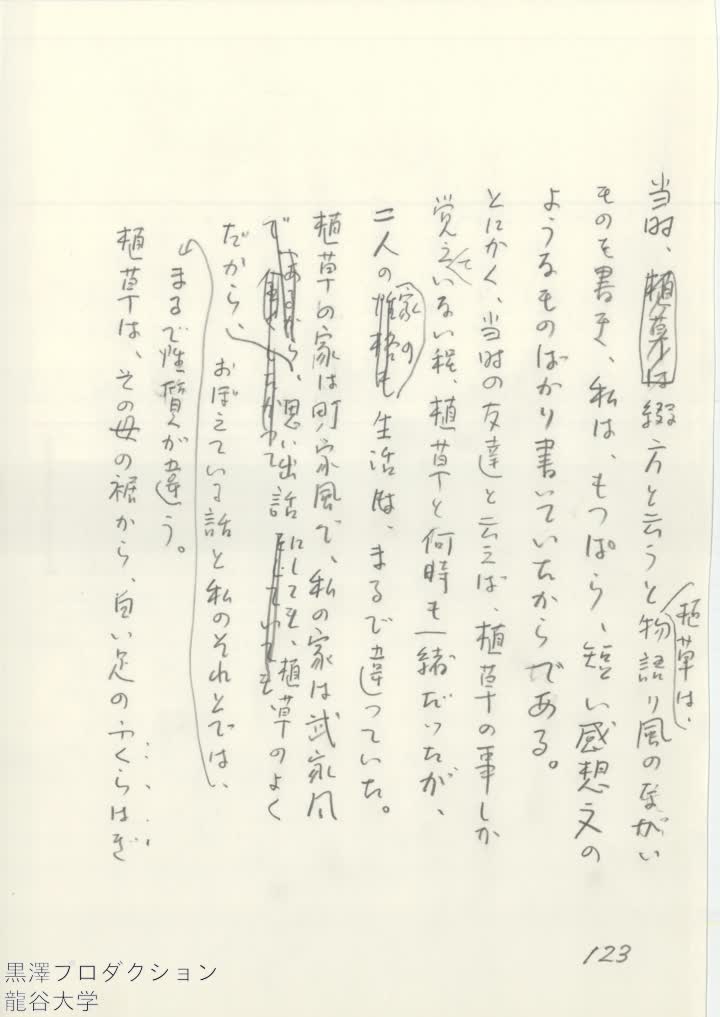 当時、植草は綴方と云うと植草は、物語り風のながい
ものを書き、私は、もっぱら、短い感想文の
ようなものばかり書いていたからである。
とにかく、当時の友達と云えば、植草の事しか
覚えていない程、植草と何時も一緒だったが、
二人の家の生活は、まるで違っていた。
植草の家は町家風で、私の家は武家風
だから、思い出話にしても、植草のよく
おぼえている話と私のそれとでは、
まるで性質が違う。
植草は、その母の裾から、白い足のふくらはぎ
123
黒澤プロダクション
龍谷大学